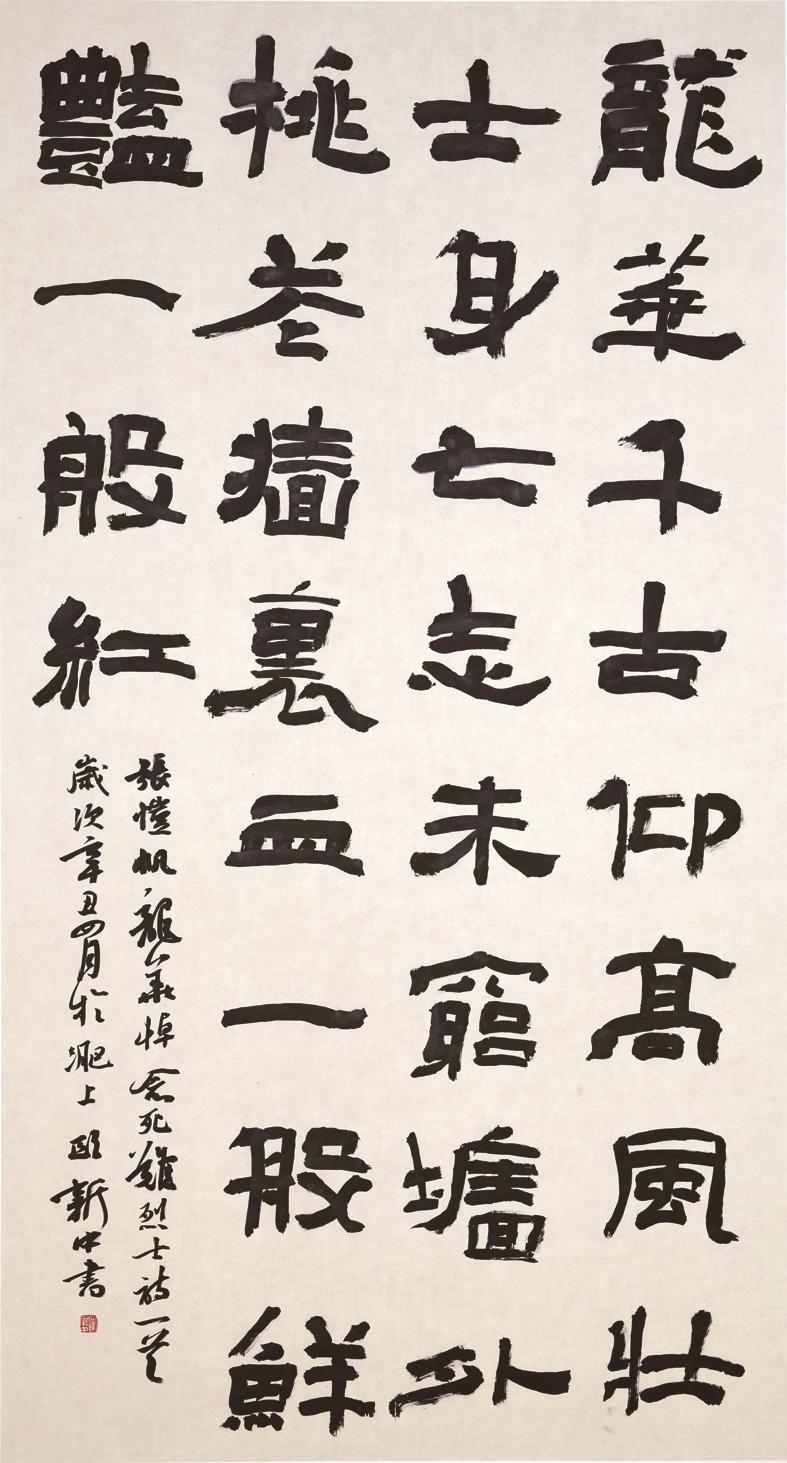 龍華千古仰高風壯
士身亡志未窮墻外
桃花牆裏血一般鮮
豔一般紅
張愷帆龍華悼念死難烈士詩一首
歲次辛丑四月於淝上歐新中書